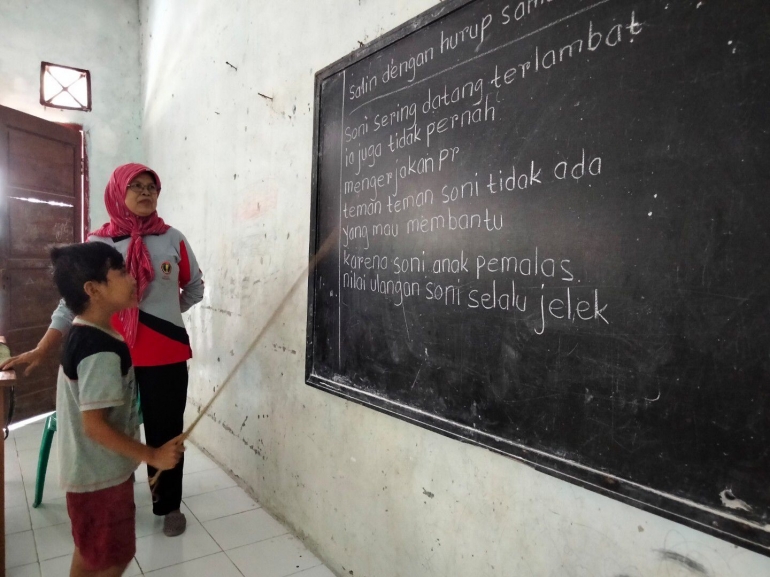 salin dengan hurup
soni sering datang terlambat
ia juga tidak pernah
mengerjakan pr
teman teman soni tidak ada
yang mau membantu
karena soni anak pemalas.
nilai ulangan soni selalu jelek